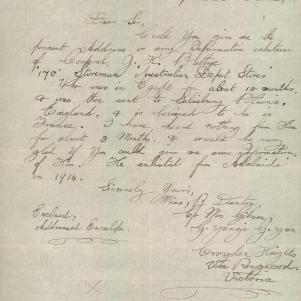 Dear Sir,
Could You give me the
present Address or any Information relative
of Corporal, J. H.
"170" Storeman Australian Depot Stores
Who was in Egypt for about 10 months
& was then sent to Salisbury Plains,
England, & is believed to be in
France. I have heard nothing from Him
for about 3 Months, & would be very
glad if You could give me some Information
of Him. He enlisted from Adelaide
in 1914.
Sincerely Yours,
Miss,
C/o Mrs Gibson,
Enclosed,
Addressed Envelope
Croydon Heights
Via Ringwood
Victoria